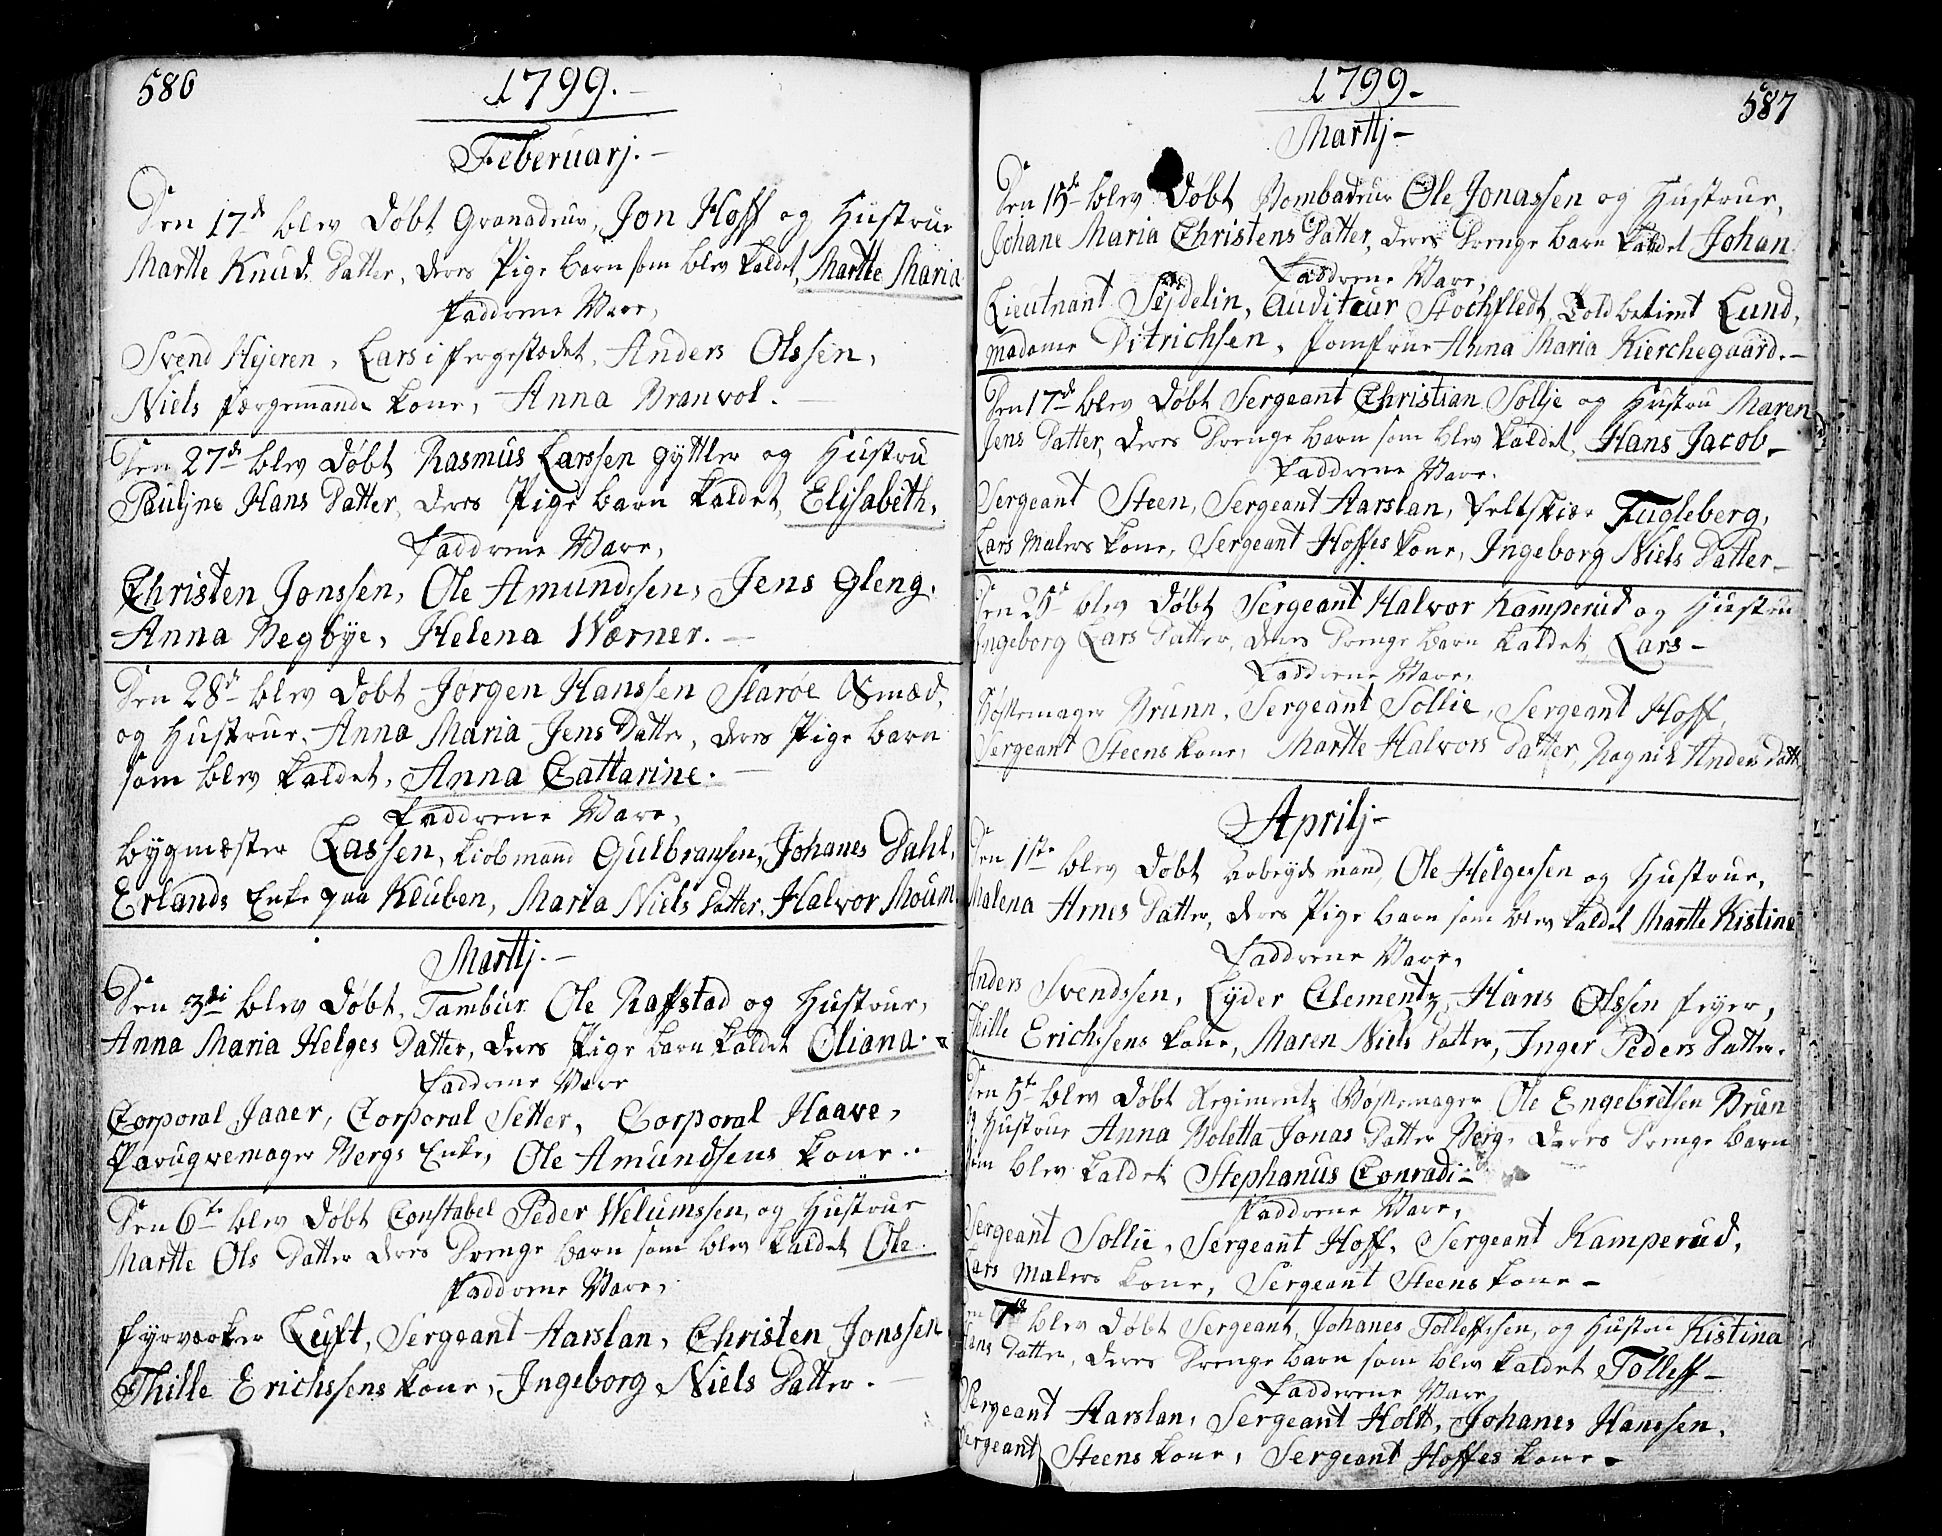 586
1799.
Februarj.
Den 17d blev Døbt Granadeur, Jon Hoff og Hustrue
Martte Knuds Datter, deres Pige barn som blev kaldet, Martte Maria
Fadderne Vare,
Svend Hejeren, Lars i fergestædet, Anders Olssen,
Niels færgemands kone, Anna Branvol.
Den 27d blev Døbt Rasmus Larssen gyttler og Hustru
Pauljne Hans Datter, deres Pige barn kaldet, Elisabeth,
Fadderne Vare,
Christen Jonssen, Ole Amundssen, Jens Gleng.
Anna Begbye, Helena Wærner.
Den 28d blev Døbt Jørgen Hanssen Slarøe Smæd,
og Hustrue, Anna Maria Jens Datter, deres Pige barn
som blev kaldet, Anna Cattarine.
Fadderne Vare,
bygmæster Lassen, kiobmand Gulbransen, Johanes Dahl,
Erlands Enke paa Kluben, Maria Niels Datter, Halvor Moum
Marttj.
Den 3di blev Døbt, Tambur Ole Raffstad og Hustrue,
Anna Maria Helges Datter, deres Pige barn kaldet Oliana.
Fadderne Vare
Corporal Jaaer, Corporal Setter, Corporal Haave,
Paruqvemager Bergs Enke, Ole Amundsens kone.
Den 6te blev Døbt Constabel Peder Welumssen, og Hustrue
Martte Ols Datter deres Drenge barn som blev kaldet Ole.
Fadderne Vare,
fyrværker Luft, Sergeant Aarslan, Christen Jonssen
Thille Erichssens kone, Ingeborg Niels Datter.
1799.
587
Marttj
Den 15de blev Døbt Bombadeur Ole Jonassen og Hustrue,
Johane Maria Christens Datter, deres Drenge barn kaldet Johan
Fadderne Vare,
Lieutnant Sejdelin, Auditeur Stochfledt, Toldbetient Lund,
madame Ditrichsen, Jomfrue Anna Maria Kierchegaard.
Den 17d blev Døbt Sergeant Christian Sollje og Hustru Maren
Jens Datter, deres Drenge barn som blev kaldet, Hans Jacob
Fadderne Vare.
Sergeant Steen, Sergeant Aarslan, feltskiær Fugleberg,
Lars Malers kone, Sergeant Hoffes kone, Ingeborg Niels Datter
Den 25d blev Døbt Sergeant Halvor Kamperud og Hustru
Ingeborg Lars Datter, deres Drenge barn kaldet Lars
Fadderne Vare,
Bøssemager Brunn, Sergeant Sollie, Sergeant Hoff,
Sergeant Steens kone, Martte Halvors Datter, Ragnil Anders Datt
Aprilj
Den 1ste blev Døbt Arbeyds mand, Ole Helgessen og Hustrue,
Malena Arnes Datter, deres Pige barn som blev kaldet Martte Kistine
Fadderne Vare,
Anders Svendssen, Lyder Clementz, Hans Olssen feyer,
Thille Erichssens kone, Maren Niels Datter, Inger Peders Datter.
Den 5te blev Døbt Regimentz Bøssemager Ole Engebretsen Brun
og Hustrue Anna Boletta Jonas Datter Berg, deres Drenge barn
som blev kaldet Stephanus Conradi
Fadderne Vare,
Sergeant Sollie, Sergeant Hoff, Sergeant Kamperud,
Lars Malers kone, Sergeant Steens kone
Den 7de blev Døbt Sergeant, Johanes Tolleffssen, og Hustru Kistina
Hans Datter, deres Drenge barn som blev kaldet Tolleff
Fadderne Vare
Sergeant Aarslan, Sergeant Holtt, Johanes Hanssen,
Sergeant Steens kone, Sergeant Hoffes kone